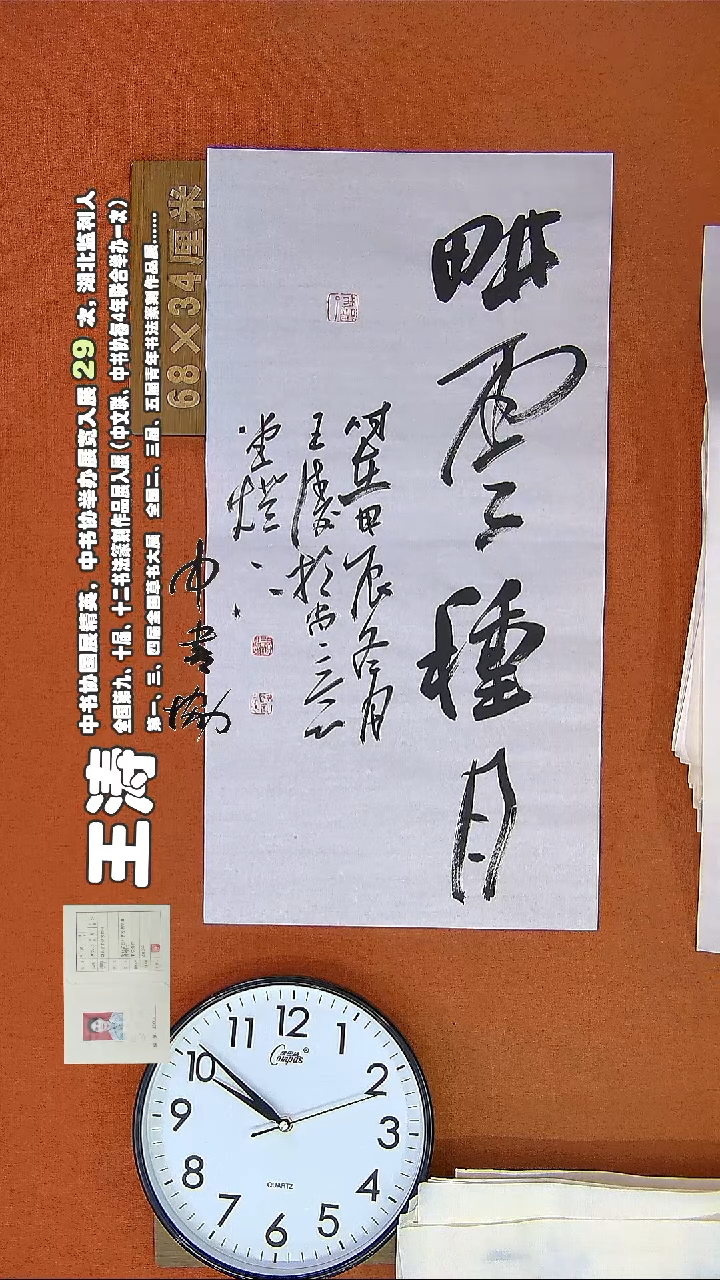 畊雲種月
时在甲辰冬月
王涛於尚
堂燈下
中書協
68×34厘米
王涛
中书协国展精英，中书协举办展览入展29次，湖北监利人
全国第九、十届、十二书法篆刻作品展入展（中文联、中书协每4年联合举办一次）
第一、三、四届全国草书大展 全国二、三届、五届青年书法篆刻作品展......
12
1
2
3
4
5
6
7
8
9
10
11
Compas
QUARTZ